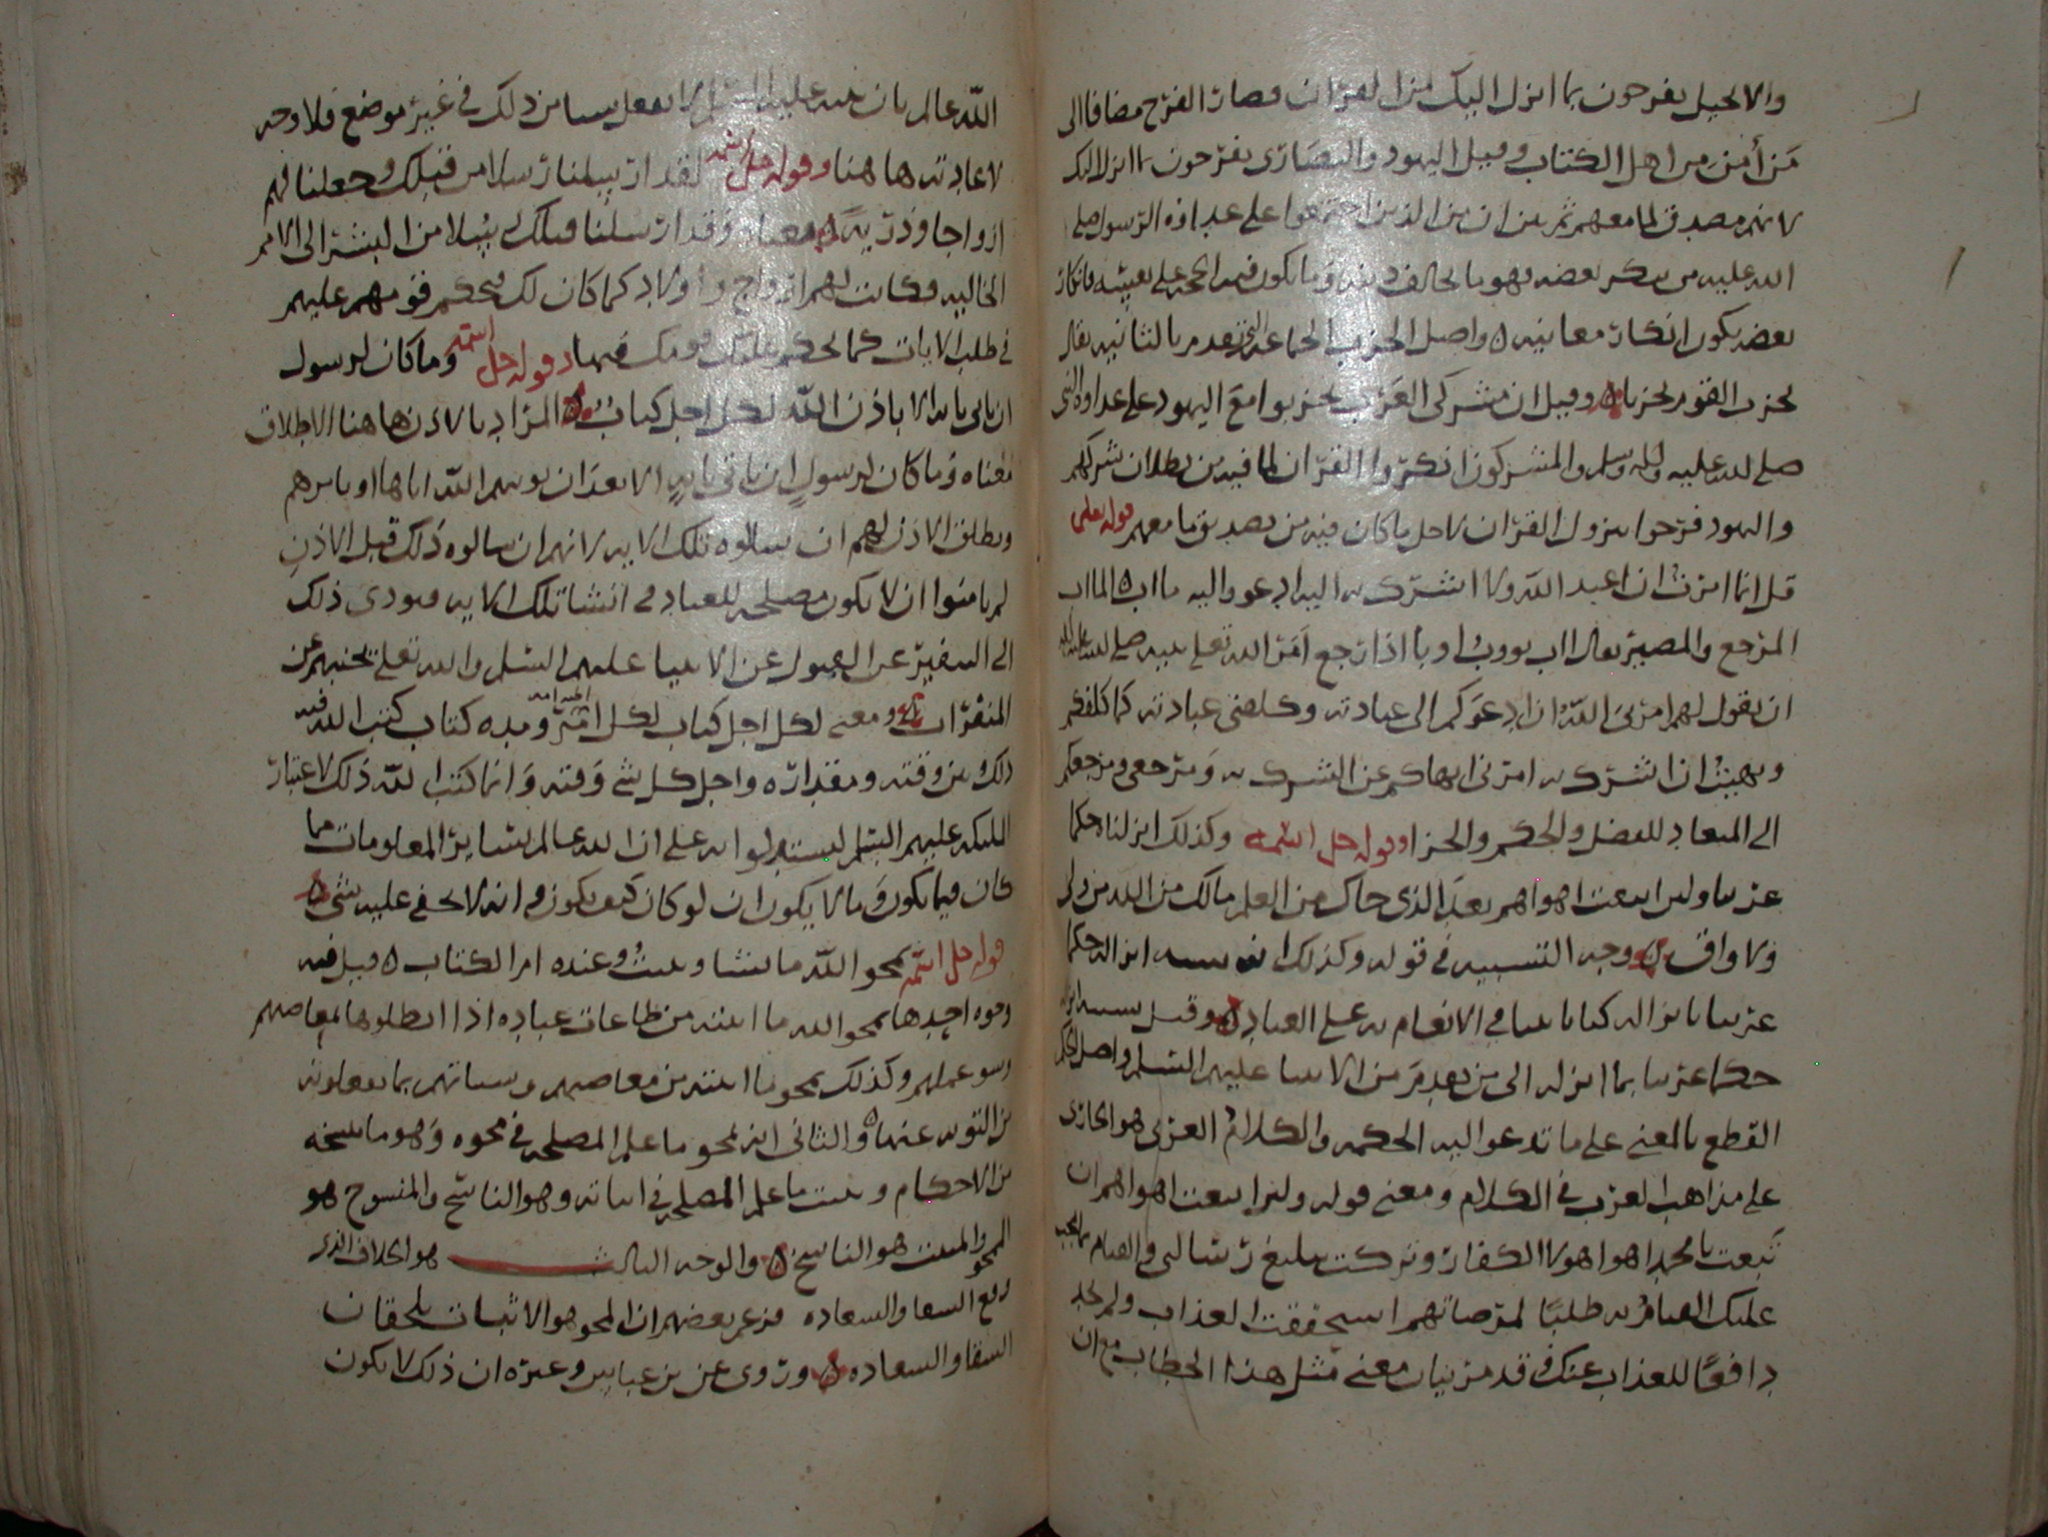 والانجيل يفرحون بما انزل اليك من القرآن فصار الفرح مضافا الى
من أمن من اهل الكتاب وقيل اليهود والنصارى يفرحون بما انزل اليك
لانه مصدق لما معهم ثم بين ان من الذين اجتمعوا على عداوة الرسول صلى
الله عليه من ينكر بعضه فهو ما يخالف دينه وما يكون فيه الحجة على بعينه فانكار
بعضه يكون انكار معانيه واصل الحزب الجماعة التي تقدم بالثانيه يقال
تحزب القوم تحزبا وقيل ان مشركى العرب تحزبوا مع اليهود على عداوة النبي
صلى الله عليه واله وسلم والمشركون انكروا القرآن لما فيه من بطلان شركهم
واليهود فرحوا بنزول القرآن لاجل ما كان فيه من تصديق ما معهم قوله تعلى
قل انما امرت ان اعبد الله ولا اشرك به اليه ادعو واليه مااب المااب
المرجع والمصير يقال اب يووب اوبا اذا رجع امر الله تعلى نبيه صلى الله عليه واله
ان يقول لهم امرني الله ان ادعوكم الى عبادته وكلفني عبادته كما كلفكم
ونهيت ان اشرك به امرنى انهاكم عن الشرك به ومرجعى ومرجعكم
الى الميعاد للفصل والحكم والجزا وقوله جل اسمه وكذلك انزلناه حكما
عربيا ولئن اتبعت اهواهم بعد الذى جاك من العلم مالك من الله من ولى
ولا واق وجه التشبيه في قوله وكذلك انه انزاله حكما
عربيا بانزاله كتابا في الانعام به على العباد وقيل
حكما عربيا بما انزله الى من تقدم من الانبيا عليهم السلم واصل الحكم
القطع بالمعنى على ما تدعو اليه الحكمه والكلام العربى هو الجارى
على مذاهب العرب في الكلام ومعنى قوله ولئن اتبعت اهواهم ان
تبعت يا محمد اهوا هولا الكفار وتركت تبليغ رسالتى والقيام بما يجب
عليك القيام به طلبًا لمرضاتهم استحققت العذاب ولم تجد
دافعًا للعذاب عنك وقد مر بيان معنى مثل هذا الخطاب مع ان
الله عالم بان نبيه عليه السلم لا يفعل شيئا من ذلك في غير موضع فلا وجه
لاعادته هاهنا وقوله جل اسمه لقد ارسلنا رسلا من قبلك وجعلنا لهم
ازواجا وذرية معناه وقد ارسلنا قبلك رسلا من البشر الى الامم
الخاليه فكانت لهم ازواج واولاد كما كان لك فحكم قومهم عليهم
في طلب الايات كما تحكم عليك قومك فيها وقوله جل اسمه وما كان لرسول
ان ياتى بايه الا باذن الله لكل اجل كتاب المراد بالاذن هاهنا الاطلاق
معناه وما كان لرسول ان ياتى بايه الا بعد ان يوتيهم الله اياها او يامرهم
ويطلق الاذن لهم ان يسالوه تلك الايه لانهم ان سالوه ذلك قبل الاذن
لم يامنوا ان لا يكون مصلحه للعباد في انشا تلك الايه فيودى ذلك
الى التنفير عن القبول عن الانبيا عليهم السلم والله تعلى يجنبهم عن
المنفرات ومعنى لكل اجل كتاب لكل امر ومده كتاب كتب الله فيه
ذلك وبين وقته ومقداره واجل كل شى وقته وانما كتب الله ذلك لاعتبار
المليكه عليهم السلم ليستدلوا به على ان الله عالم بساير المعلومات مما
كان وفيما يكون وما لا يكون ان لو كان كيف يكون وانه لا يخفى عليه شى
قوله جل اسمه يمحو الله ما يشا ويثبت وعنده ام الكتاب قيل فيه
وجوه احدها يمحو الله ما اثبته من طاعات عباده اذا ابطلوها بمعاصيهم
وسو عملهم وكذلك يمحو ما اثبته من معاصيهم وسياتهم بما يفعلونه
من التوبه عنها والثانى انه يمحو ما علم المصلحه في محوه وهو ما ينسخه
من الاحكام ويثبت ما علم المصلحه في اثباته وهو الناسخ والمنسوخ هو
المحو والمثبت هو الناسخ والوجه الثالث هو الخلاف الذى
رفع الشقا والسعاده فزعم بعضهم ان المحو هو الاثبات يلحقان
الشقا والسعاده وروى عن بن عباس وغيره ان ذلك لا يكون